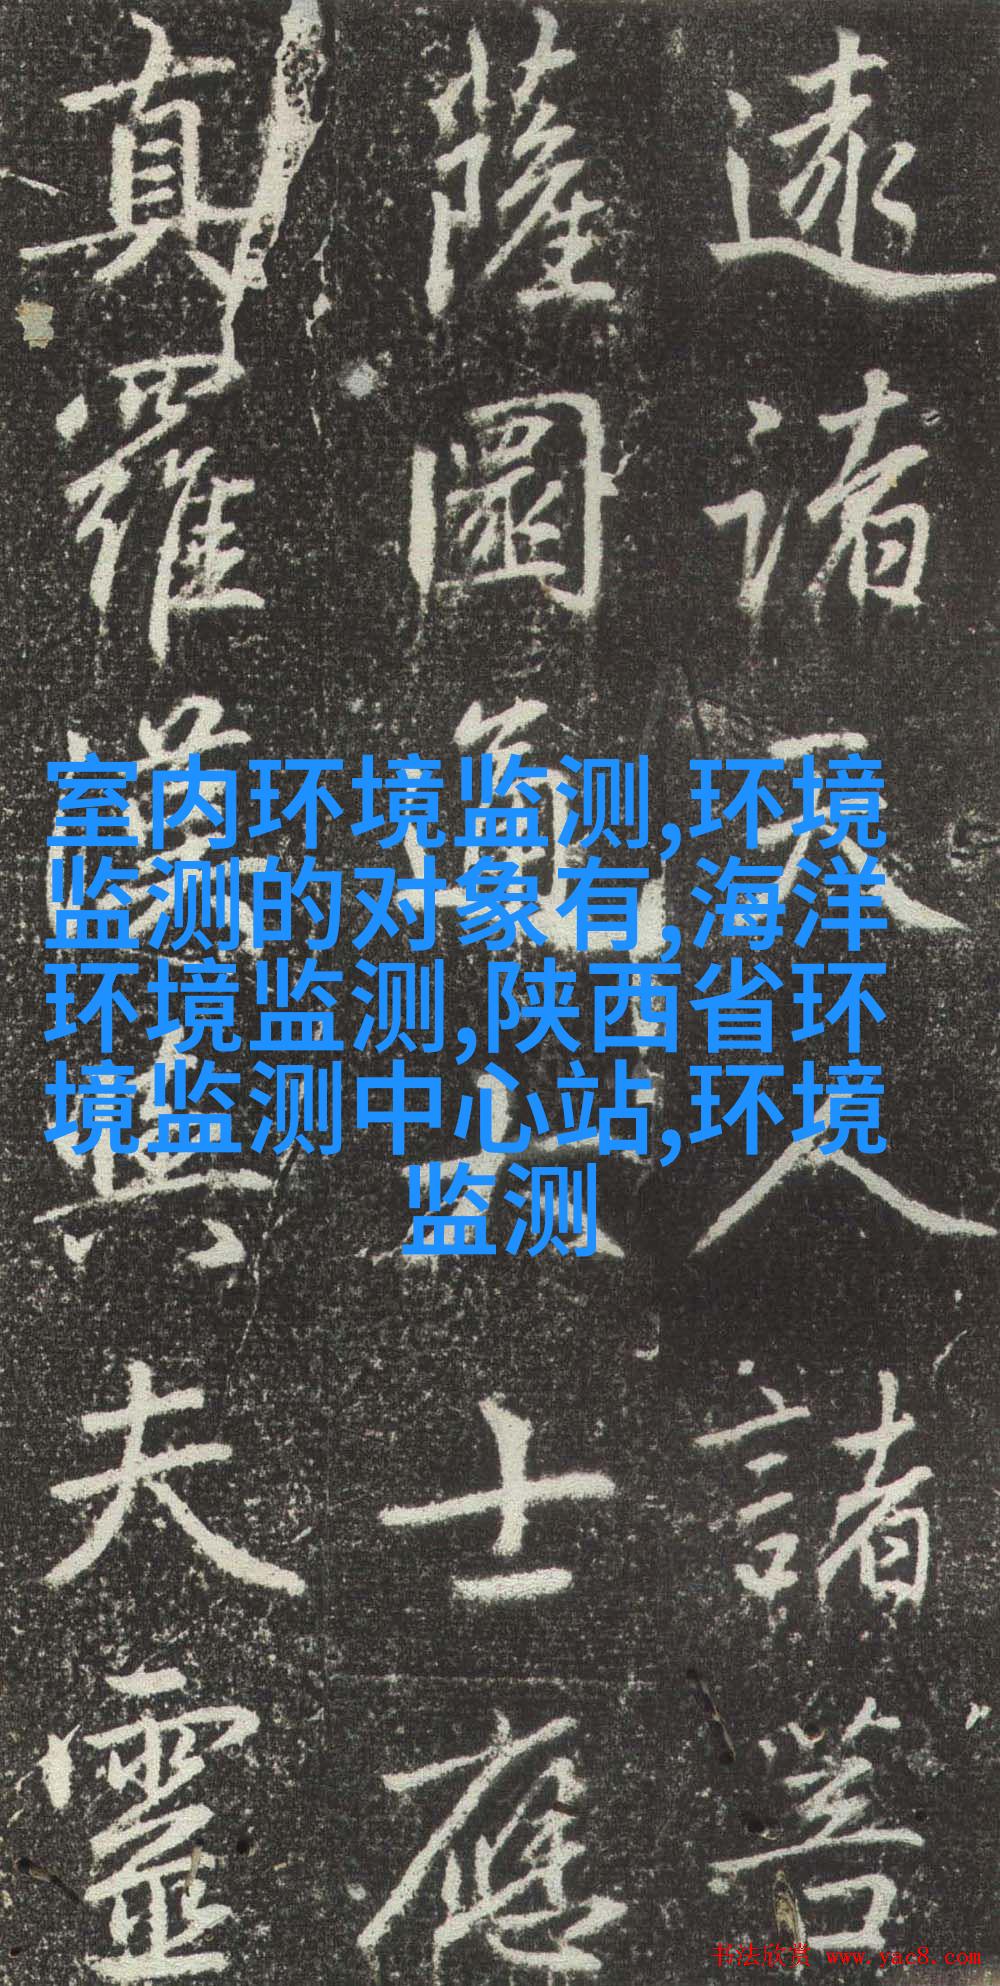 逮諸天人諸菩
薩圓通大士應
真羅漢與夫靈
室内环境监测,环境
监测的对象有,海洋
环境监测,陕西省环
境监测中心站,环境
监测
书法欣赏 www.yac8.com